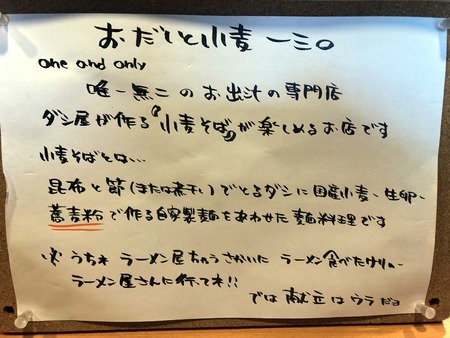 おだしと小麦 一三〇
one and only
唯一無二のお出汁の専門店
ダシ屋が作る『小麦そば』が楽しめるお店です
小麦そばとは…
昆布と節(または煮干し)でとるダシに国産小麦、生卵、
蕎麦粉で作る自家製麺をあわせた麺料理です
※うちネ ラーメン屋ちゃうさかいに ラーメン食べたけりゃ
ラーメン屋さんに行ってネ!!
では献立はウラだョ